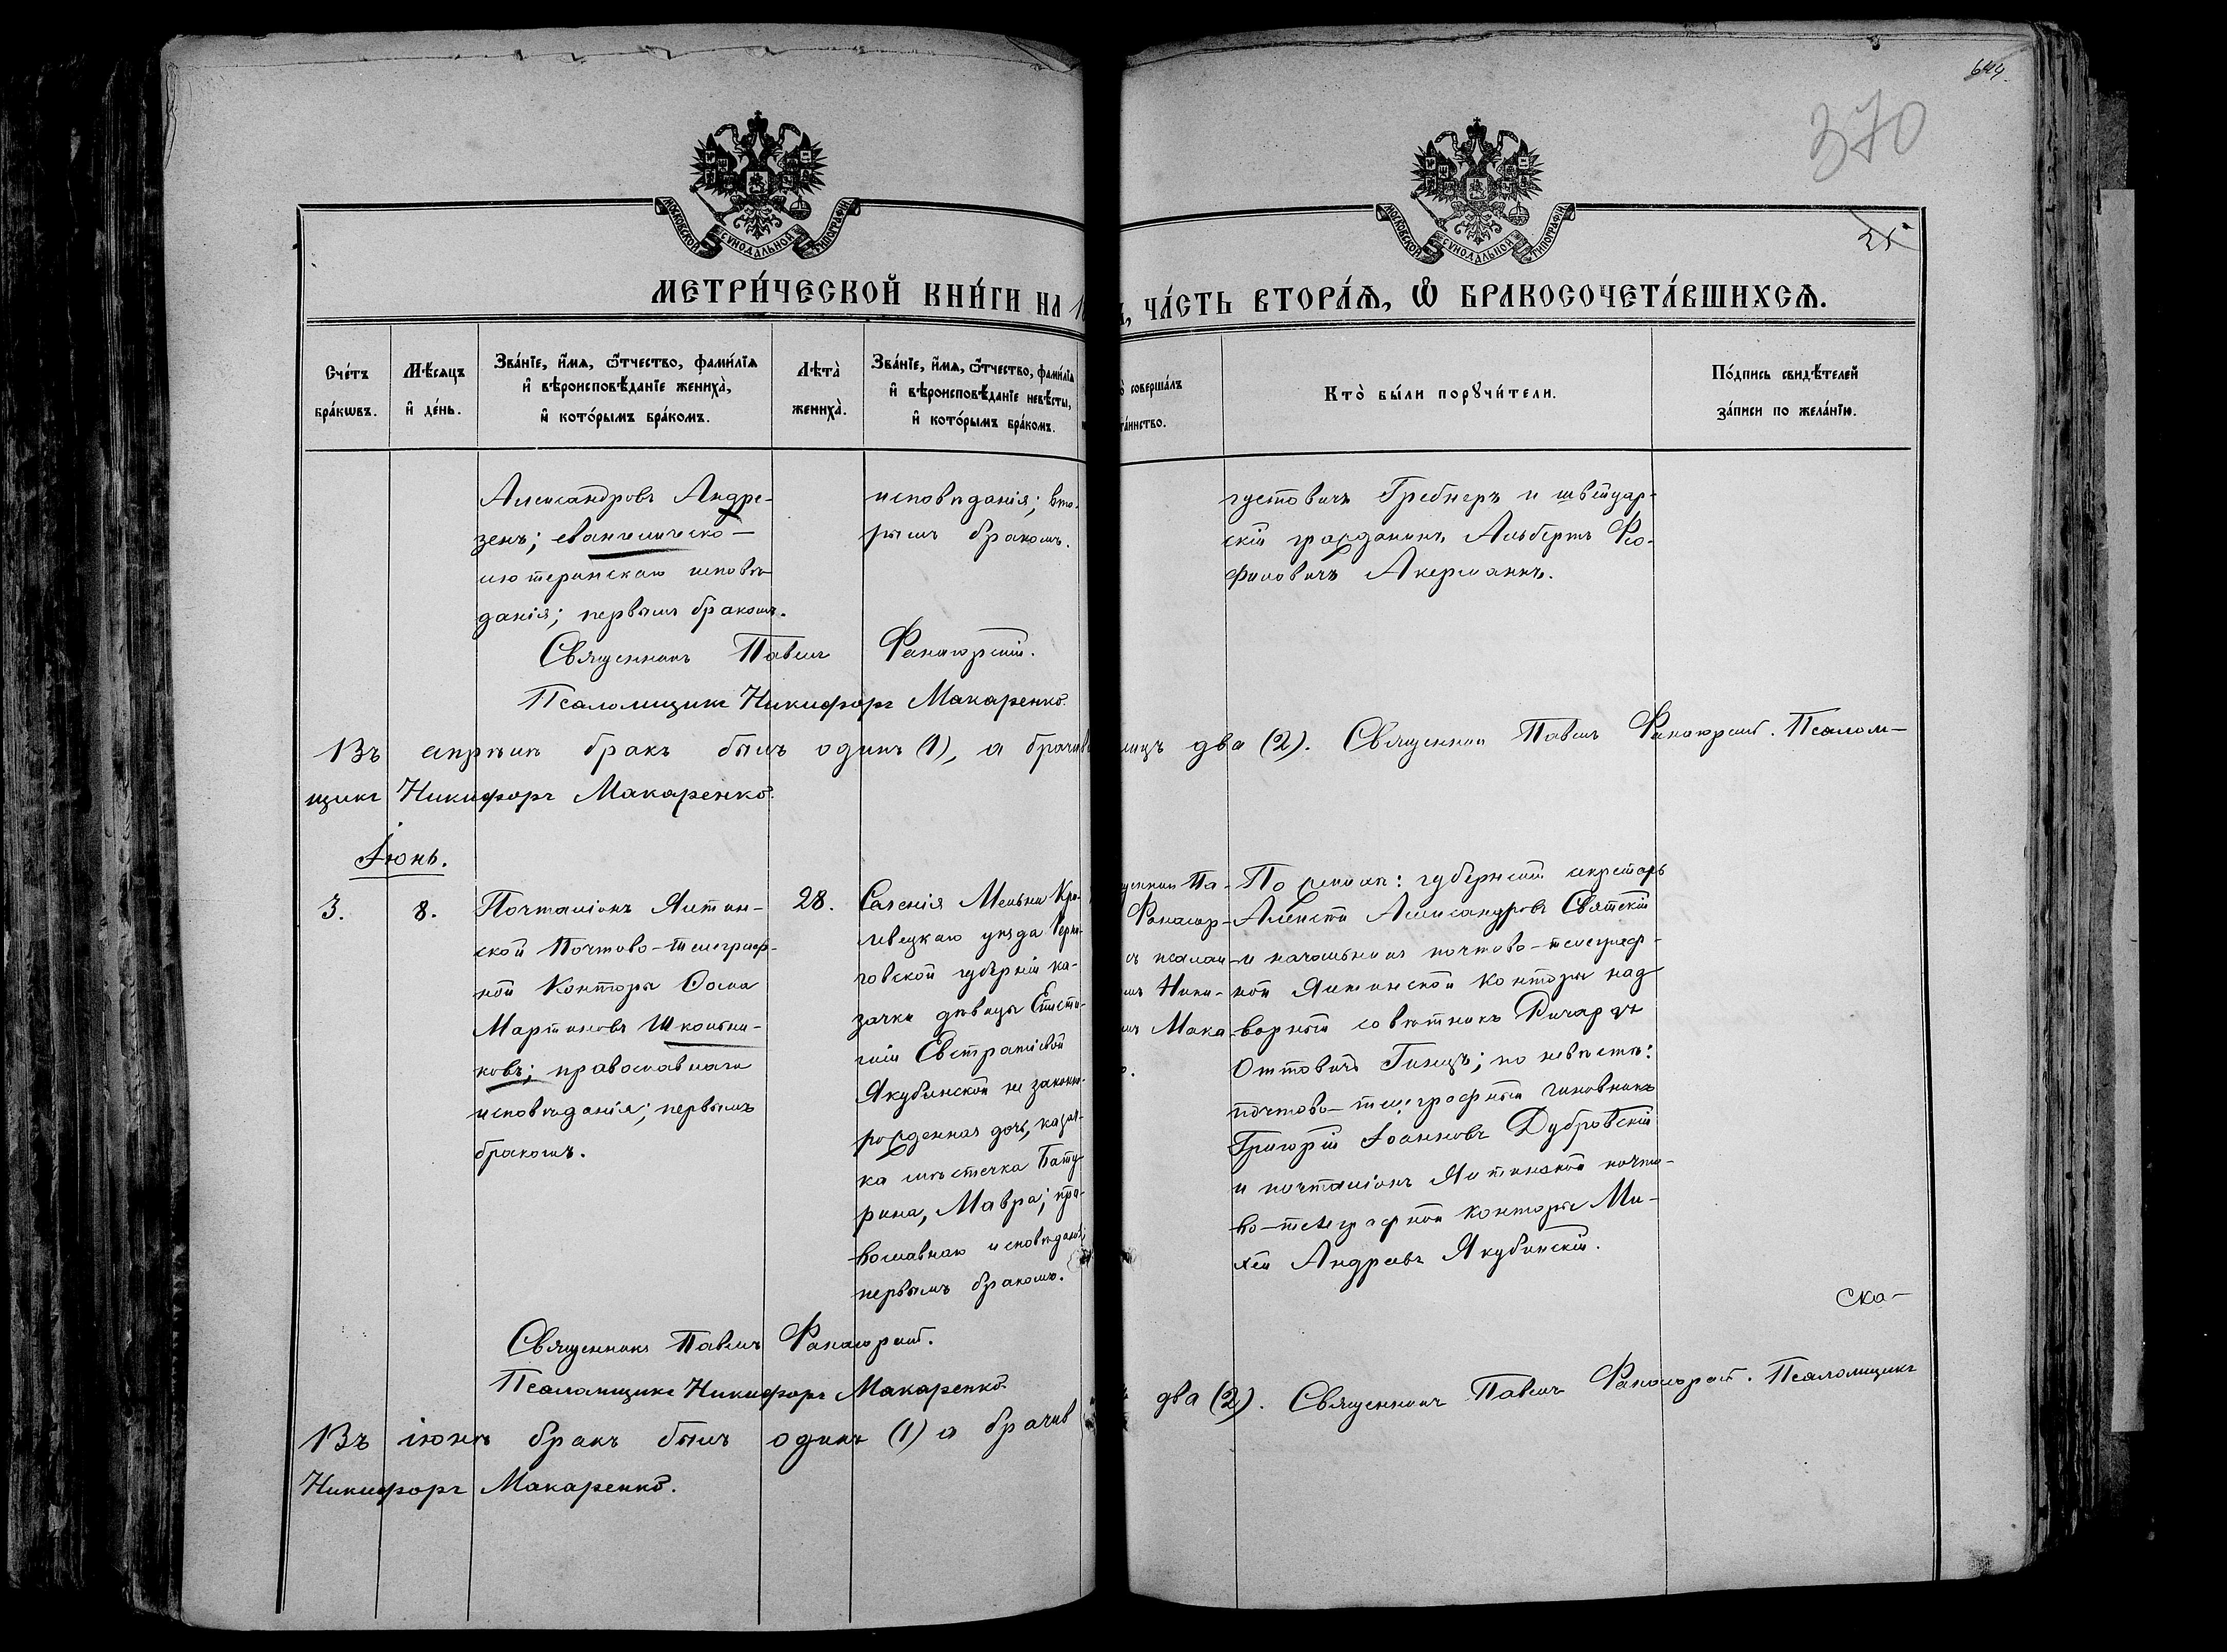 644.
370
25
МОСКОВСКОЙ СѴНОДАЛЬНОЙ ТИПОГРАФІИ
МОСКОВСКОЙ СѴНОДАЛЬНОЙ ТИПОГРАФІИ
МЕТРИ́ЧЕСКОЙ КНИ́ГИ НА 1
, ЧА́СТЬ ВТОРА́Ѧ, Ѽ БРАКОСОЧЕТА́ВШИХСѦ.
Сче́тъ
бра́кѡвъ.
Мѣ́сяцъ
и҆ де́нь.
Зва́нїе, и҆́мѧ, ѻ҆́тчество, фами́лїѧ
и҆ вѣроисповѣ́данїе жениха̀,
и҆ кото́рымъ бра́комъ.
Лѣта̀
жениха̀.
Зва́нїе, и҆́мѧ, ѻ҆́тчество, фами́лїѧ
и҆ вѣроисповѣ́данїе невѣ́сты,
и҆ кото́рымъ бра́комъ.
соверша́лъ
та́инство.
Кто̀ бы́ли порꙋчи́тели.
По́дпись свидѣ́телей
за́писи по жела́нїю.
Александровъ Андре-
зенъ; евангелическо-
лютеранскаго исповѣ-
данія; первымъ бракомъ.
исповѣданія; вто-
рымъ бракомъ.
густовичъ Гребнеръ и швейцар-
скій гражданинъ Альбертъ Фео-
филовичъ Акерманнъ.
Священникъ Павелъ Фанагорскій.
Псаломщикъ Никифоръ Макаренко.
Въ апрѣлѣ бракъ былъ одинъ (1), а брачив
лицъ два (2). Священникъ Павелъ Фанагорскій. Псалом-
щикъ Никифоръ Макаренко.
Іюнь.
3.
8.
Почталіонъ Ялтин-
ской Почтово-телеграф-
ной Конторы
Мартиновъ Школьни-
ковъ; православнаго
исповѣданія; первымъ
бракомъ.
28.
Селенія Мельни Кро-
левецкаго уѣзда Черни-
говской губерніи ка-
зачки дѣвицы Еписти-
міи Евстратіевой
Якубинской не законно-
рожденная дочь, казач-
ка мѣстечка Бату-
рина, Мавра; пра-
вославнаго исповѣданія;
первымъ бракомъ.
щенникъ Па-
Фанагор-
ъ псалом-
мъ Ники-
мъ Мака-
о.
По женихѣ: губернскій секретарь
Алексѣй Александровъ Святскій
и начальникъ почтово-телеграф-
ной Ялтинской конторы над-
ворный совѣтникъ Ричардъ
Оттовичъ Гинцъ; по невѣстѣ:
почтово-телеграфный чиновникъ
Григорій Іоанновъ Дубровскій
и почталіонъ Ялтинской почто-
во-телеграфной конторы Ми-
хей Андреевъ Якубинскій.
Ска-
Священникъ Павелъ Фанагорскій.
Псаломщикъ Никифоръ Макаренко.
Въ іюнѣ бракъ былъ одинъ (1) а брачив
два (2). Священникъ Павелъ Фанагорскій. Псаломщикъ
Никифоръ Макаренко.